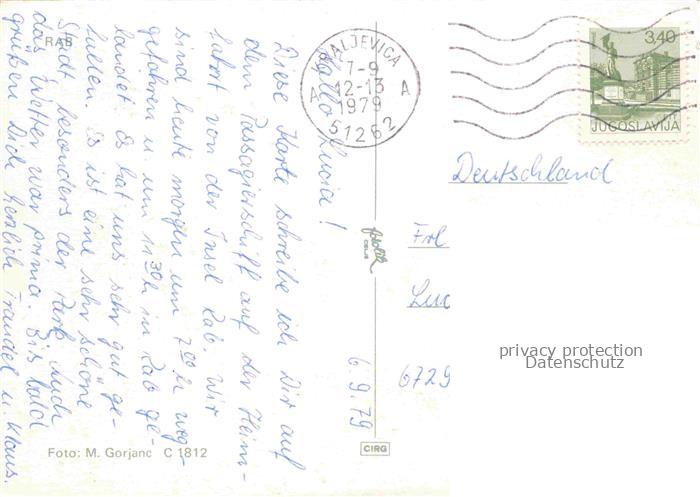 RAB
Hallo Lucia!
Diese Karte schreibe ich Dir auf
dem Passagierschiff auf der Heim-
fahrt von der Insel Rab. Wir
sind heute morgen um 7⁰⁰ h weg-
gefahren u. um 11³⁰ h in Rab ge-
landet. Es hat uns sehr gut ge-
fallen. Es ist eine sehr schöne
Stadt besonders der Park. Auch
das Wetter war prima. Bis bald
grüßen Dich herzlich Traudel u. Klaus.
6.9.79
Foto: M. Gorjanc C 1812
CIRG
KRALJEVICA
7-9
12-13
1979
A A
51262
3,40
JUGOSLAVIJA
Deutschland
Frl
Luc
6729
privacy protection
Datenschutz